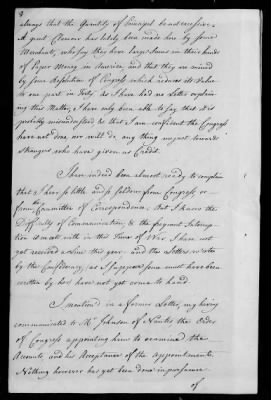 always that the Quantity of Cannon be not excessive.
A great Clamour has lately been made here by some
Merchants, who say they have large Sums in their hands
of Paper Money in America, and that they are ruined
by some Resolution of Congress which reduces its Value
to one part in Forty. As I have had no Letter explain-
ing this Matter, I have only been able to say that it is
probably misunderstood, & that I am confident the Congress
have not done, nor will do, any thing unjust towards
Strangers who have given us Credit.
I have indeed been almost ready to complain
that I hear so little and so seldom from Congress or
from the Committee of Correspondence; But I know the
Difficulty of Communication, & the frequent Interrup-
tion it meets with in this Time of War. I have not
yet received a Line this year, and the Letters wrote
by the Confederacy, (as I suppose some must have been
written by her) have not yet come to hand.
I mention'd in a former Letter, my having
communicated to Mr. Johnson of Nantes the Order
of Congress appointing him to examine the
Accounts, and his Acceptance of the Appointment.
Nothing however has yet been done in pursuance
of